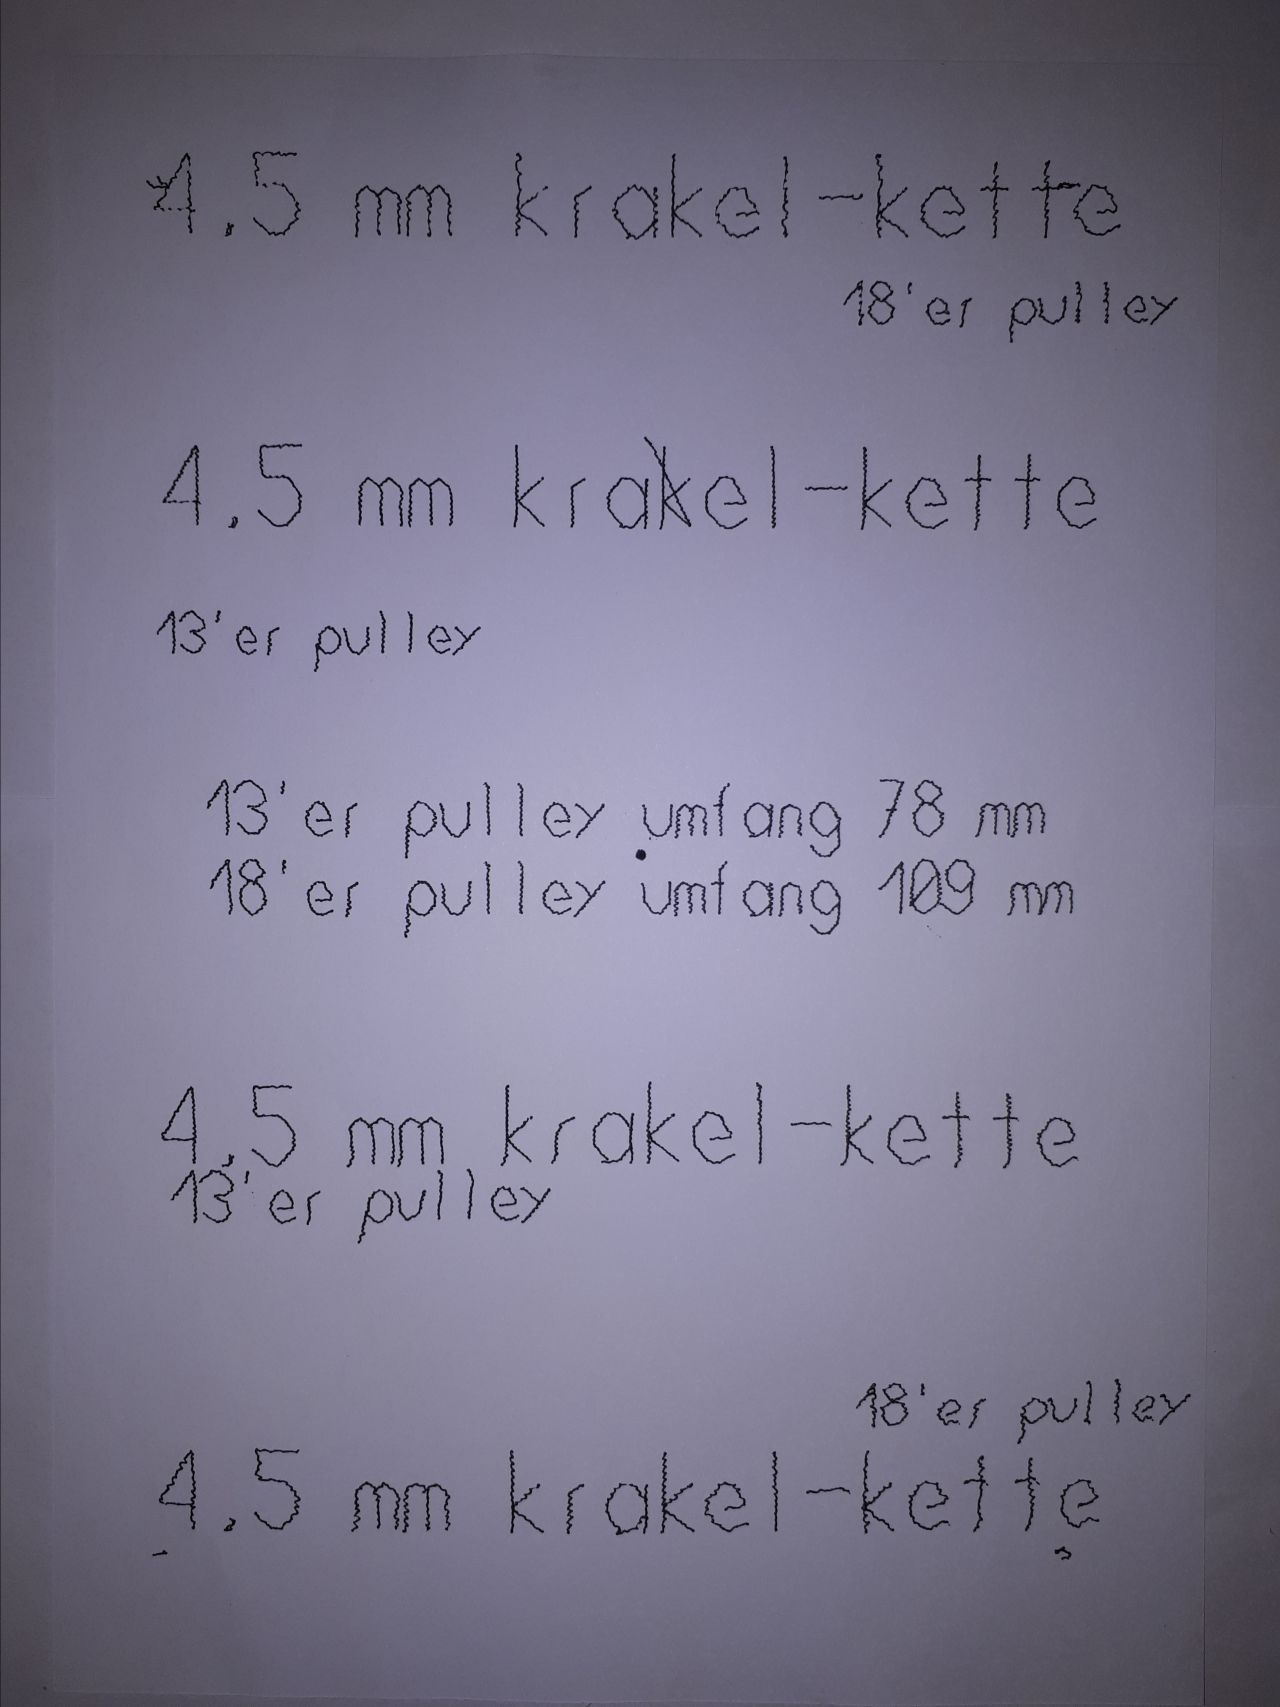 4.5 mm krakel-kette
18'er pulley
4.5 mm krakel-kette
13'er pulley
13'er pulley umfang 78 mm
18'er pulley umfang 109 mm
4.5 mm krakel-kette
13'er pulley
18'er pulley
4.5 mm krakel-kette